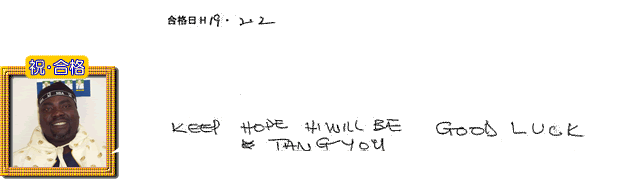 合格日 H19・2.2
祝・合格
KEEP HOPE HI WILL BE GOOD LUCK
& TANG YOU